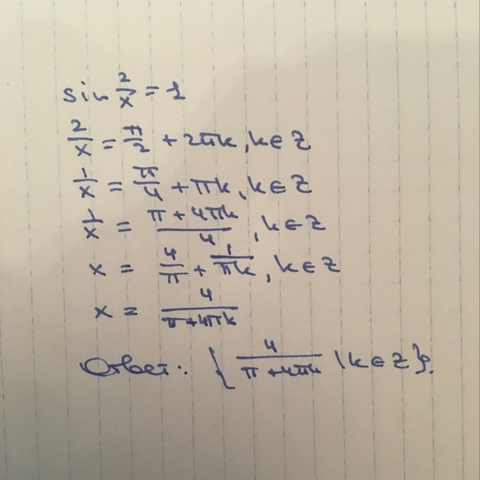 sin 2/x = 1
2/x = π/2 + 2πk, k∈Z
1/x = π/4 + πk, k∈Z
1/x = (π+4πk)/4, k∈Z
x = 4/π + 1/πk, k∈Z
x = 4/(π+4πk)
Ответ: {4/(π+4πk) | k∈Z}.